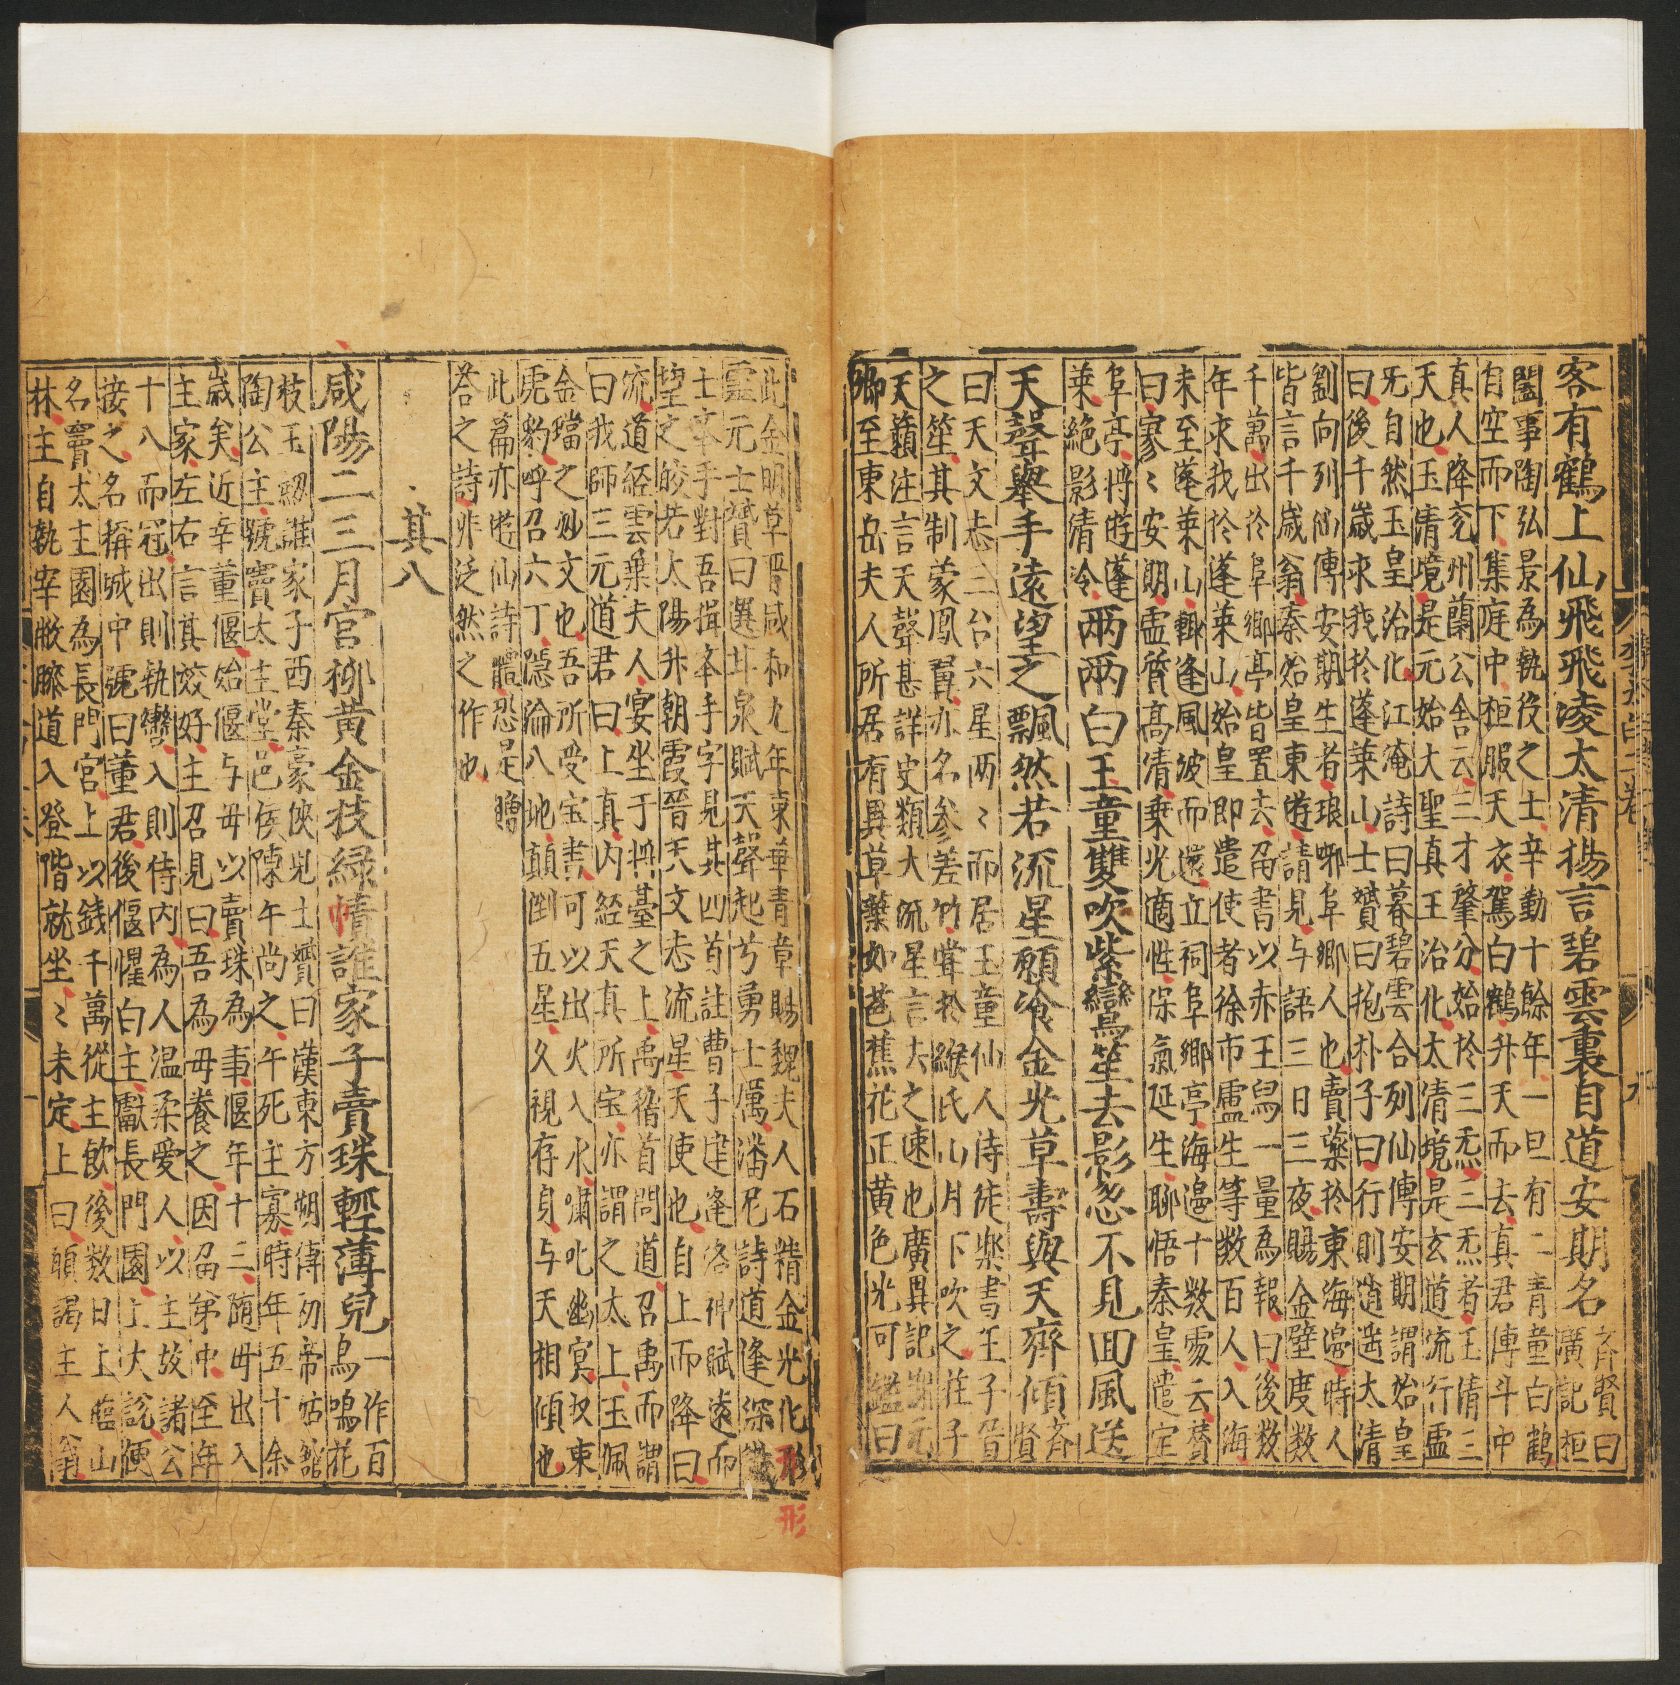 客有鶴上仙飛飛淩太清揚言碧雲裏自道安期名
齊賢曰
廣記桓
闓事陶弘景為執役之士辛勤十餘年一旦有二青童白鶴
自空而下集庭中桓服天衣駕白鶴升天而去真君傳斗中
真人降兖州蘭公舍云三才肇分始於三炁三炁者玉清三
天也玉清境是元始大聖真王治化太清境是玄道流行虛
无自然玉皇治化江淹詩曰暮碧雲合列仙傳安期謂始皇
曰後千歲求我於蓬萊山士贇曰抱朴子曰行則逍遥太清
劉向列仙傳安期生者琅琊阜鄉人也賣藥於東海邊時人
皆言千歲翁秦始皇東遊請見与語三日三夜賜金壁度數
千萬出於阜鄉亭皆置去留書以赤玉舄一量為報曰後数
年求我於蓬萊山始皇即遣使者徐市盧生等数百人入海
未至蓬萊山輙逢風波而還立祠阜鄉亭海邊十數處云贊
曰寥〻安期虛質高清乗光適性保氣延生聊悟秦皇遣定
阜亭将遊蓬
萊絶影清泠
兩兩白玉童雙吹紫鸞笙去影忽不見囬風送
天聲舉手遠望之飄然若流星願飡金光草壽與天齊傾
齊
賢
曰天文志三台六星两〻而居玉童仙人侍徒樂書王子晉
之笙其制蒙鳳翼亦名参差竹甞於緱氏山月下吹之莊子
天籟注言天聲甚詳史類大流星言去之速也廣異記謝元
卿至東岳夫人所居有異草藥如芭蕉花正黄色光可鑑曰
此金明草晋咸和九年東華青章賜魏夫人石精金光化形
靈元士贇曰選甘泉賦天聲起兮勇士厲潘尼詩道逢深識
士举手對吾揖夲手字見其四首註曹子建逢洛神賦遠而
望之皎若太陽升朝霞晉天文志流星天使也自上而降曰
流道經雲乗夫人宴坐于瑶臺之上禹稽首問道召禹而謂
曰我師三元道君曰上真内經天真所宝亦謂之太上玉佩
金璫之妙文也吾所受宝書可以出火入水嘯叱幽冥收束
虎豹呼召六丁隠淪八地顛倒五星久視存身与天相傾也
此篇亦遊仙詩體恐是贈
荅之詩非泛然之作也
其八
咸陽二三月宮柳黄金枝緑幘誰家子賣珠輕薄兒
一作百
鳥鳴花
枝玉剱誰家子西秦豪俠兒士贇曰漢東方朔傳初帝姑館
陶公主號竇太主堂邑侯陳午尚之午死主寡時年五十余
歲矣近幸董偃始偃与毋以賣珠為事偃年十三随毋出入
主家左右言其姣好主召見曰吾為毋養之因留第中至年
十八而冠出則執轡入則侍内為人温柔愛人以主故諸公
接之名稱城中號曰董君後偃懼白主獻長門園上大說便
名竇太主園為長門宮上以錢千萬從主飲後数日上臨山
林主自執宰敝膝道入登階就坐〻未定上曰願謁主人翁
形